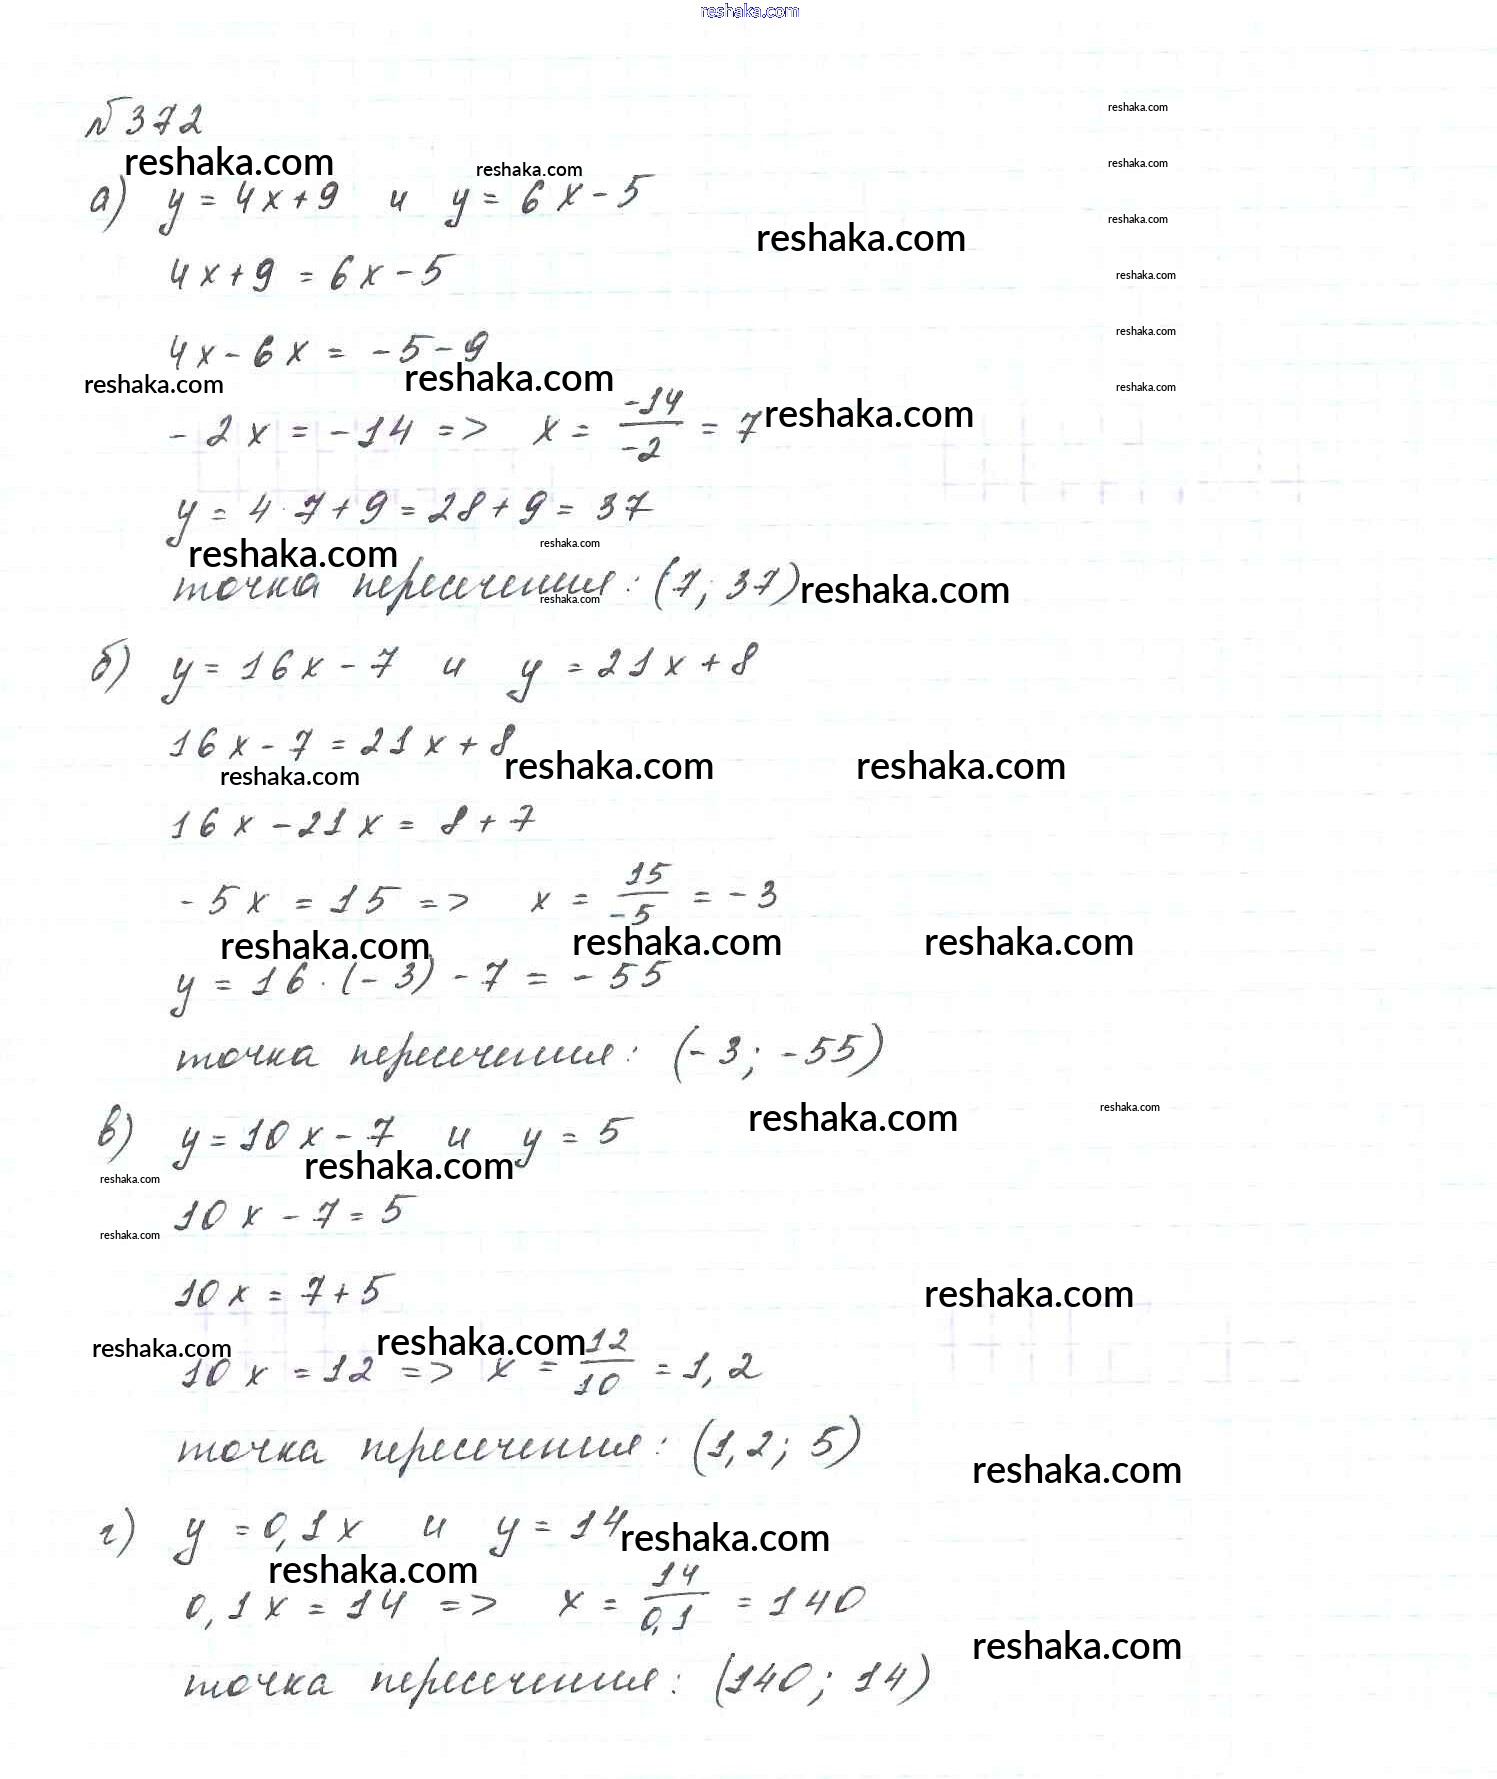 reshaka.com
№ 372
reshaka.com
reshaka.com
reshaka.com
reshaka.com
а) y = 4x + 9 и y = 6x - 5
reshaka.com
reshaka.com
4x + 9 = 6x - 5
reshaka.com
reshaka.com
4x - 6x = -5 - 9
reshaka.com
reshaka.com
reshaka.com
-2x = -14 => x = -14/-2 = 7
reshaka.com
y = 4 · 7 + 9 = 28 + 9 = 37
reshaka.com
reshaka.com
точка пересечения: (7; 37)
reshaka.com
reshaka.com
б) y = 16x - 7 и y = 21x + 8
16x - 7 = 21x + 8
reshaka.com
reshaka.com
reshaka.com
16x - 21x = 8 + 7
-5x = 15 => x = 15/-5 = -3
reshaka.com
reshaka.com
reshaka.com
y = 16 · (-3) - 7 = -55
точка пересечения: (-3; -55)
reshaka.com
reshaka.com
в) y = 10x - 7 и y = 5
reshaka.com
reshaka.com
10x - 7 = 5
reshaka.com
10x = 7 + 5
reshaka.com
reshaka.com
reshaka.com
10x = 12 => x = 12/10 = 1,2
точка пересечения: (1,2; 5)
reshaka.com
г) y = 0,1x и y = 14
reshaka.com
reshaka.com
0,1x = 14 => x = 14/0,1 = 140
reshaka.com
точка пересечения: (140; 14)